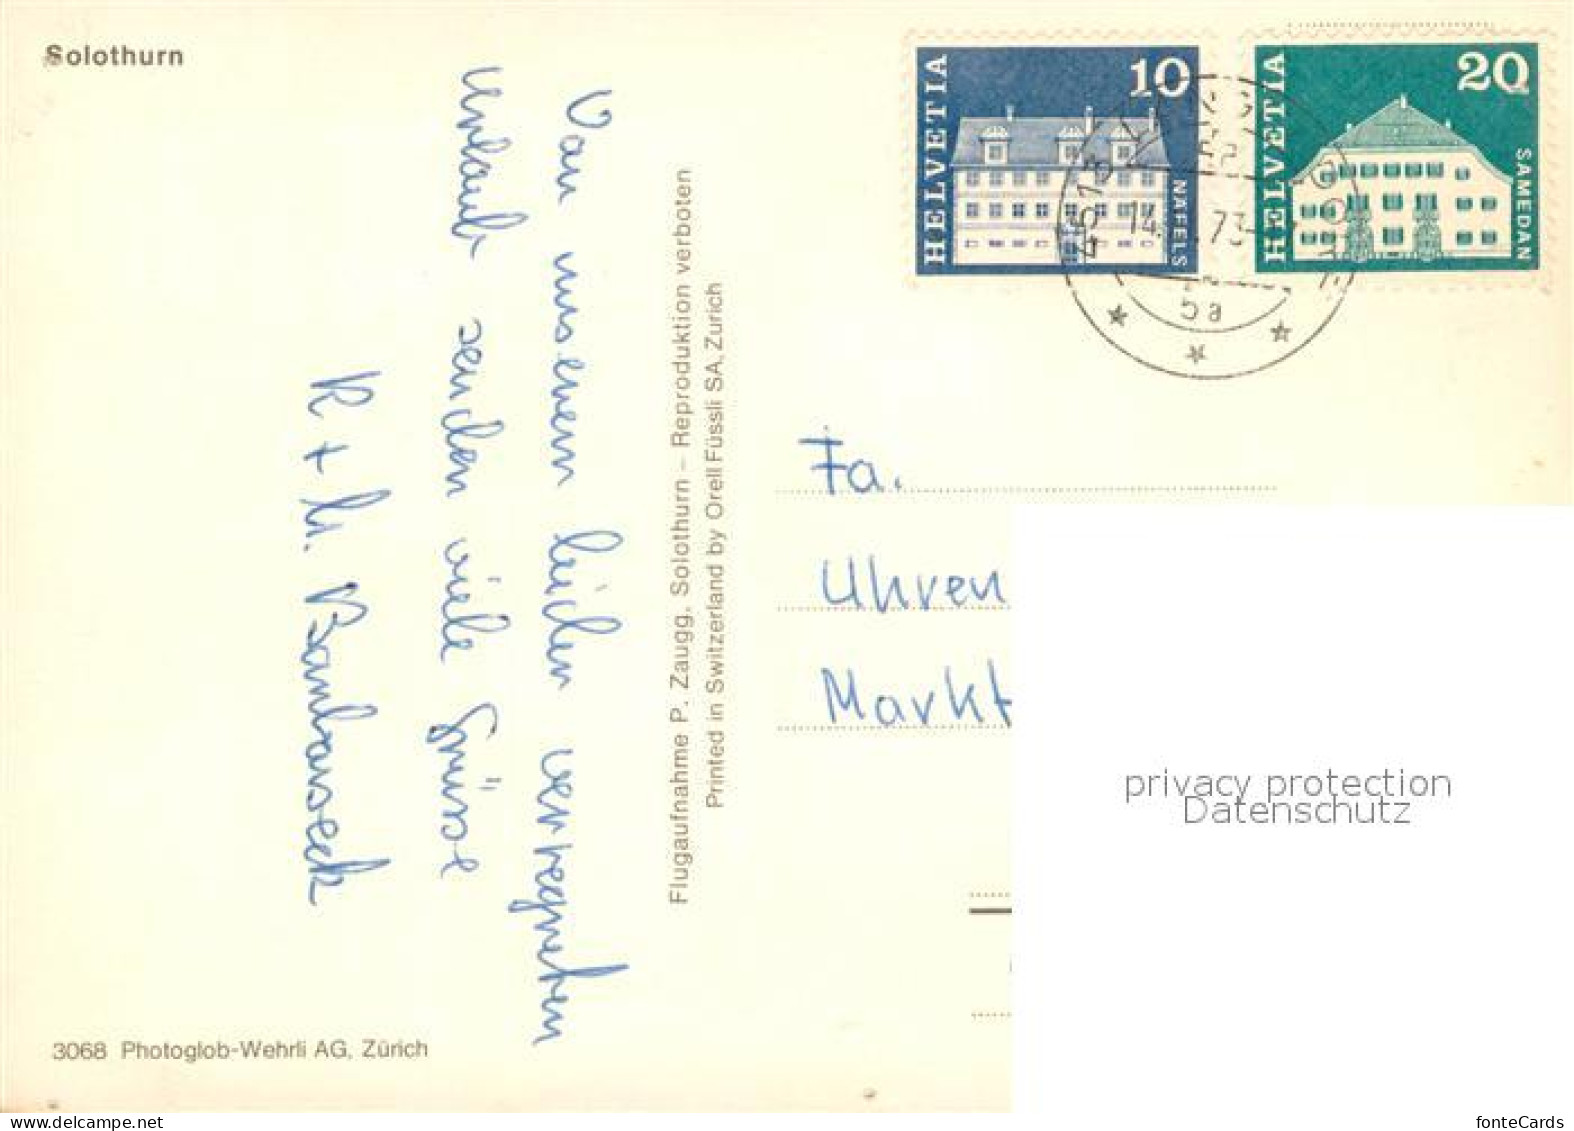 Solothurn
HELVETIA
10
NÄFELS
HELVETIA
20
SAMEDAN
4513
14. 73
Von unserem leider verregneten
Urlaub senden viele Grüsse
Flugaufnahme P. Zaugg, Solothurn – Reproduktion verboten
Printed in Switzerland by Orell Füssli SA, Zürich
Fa.
Uhren
Markt
privacy protection
Datenschutz
3068 Photoglob-Wehrli AG, Zürich
fonteCards